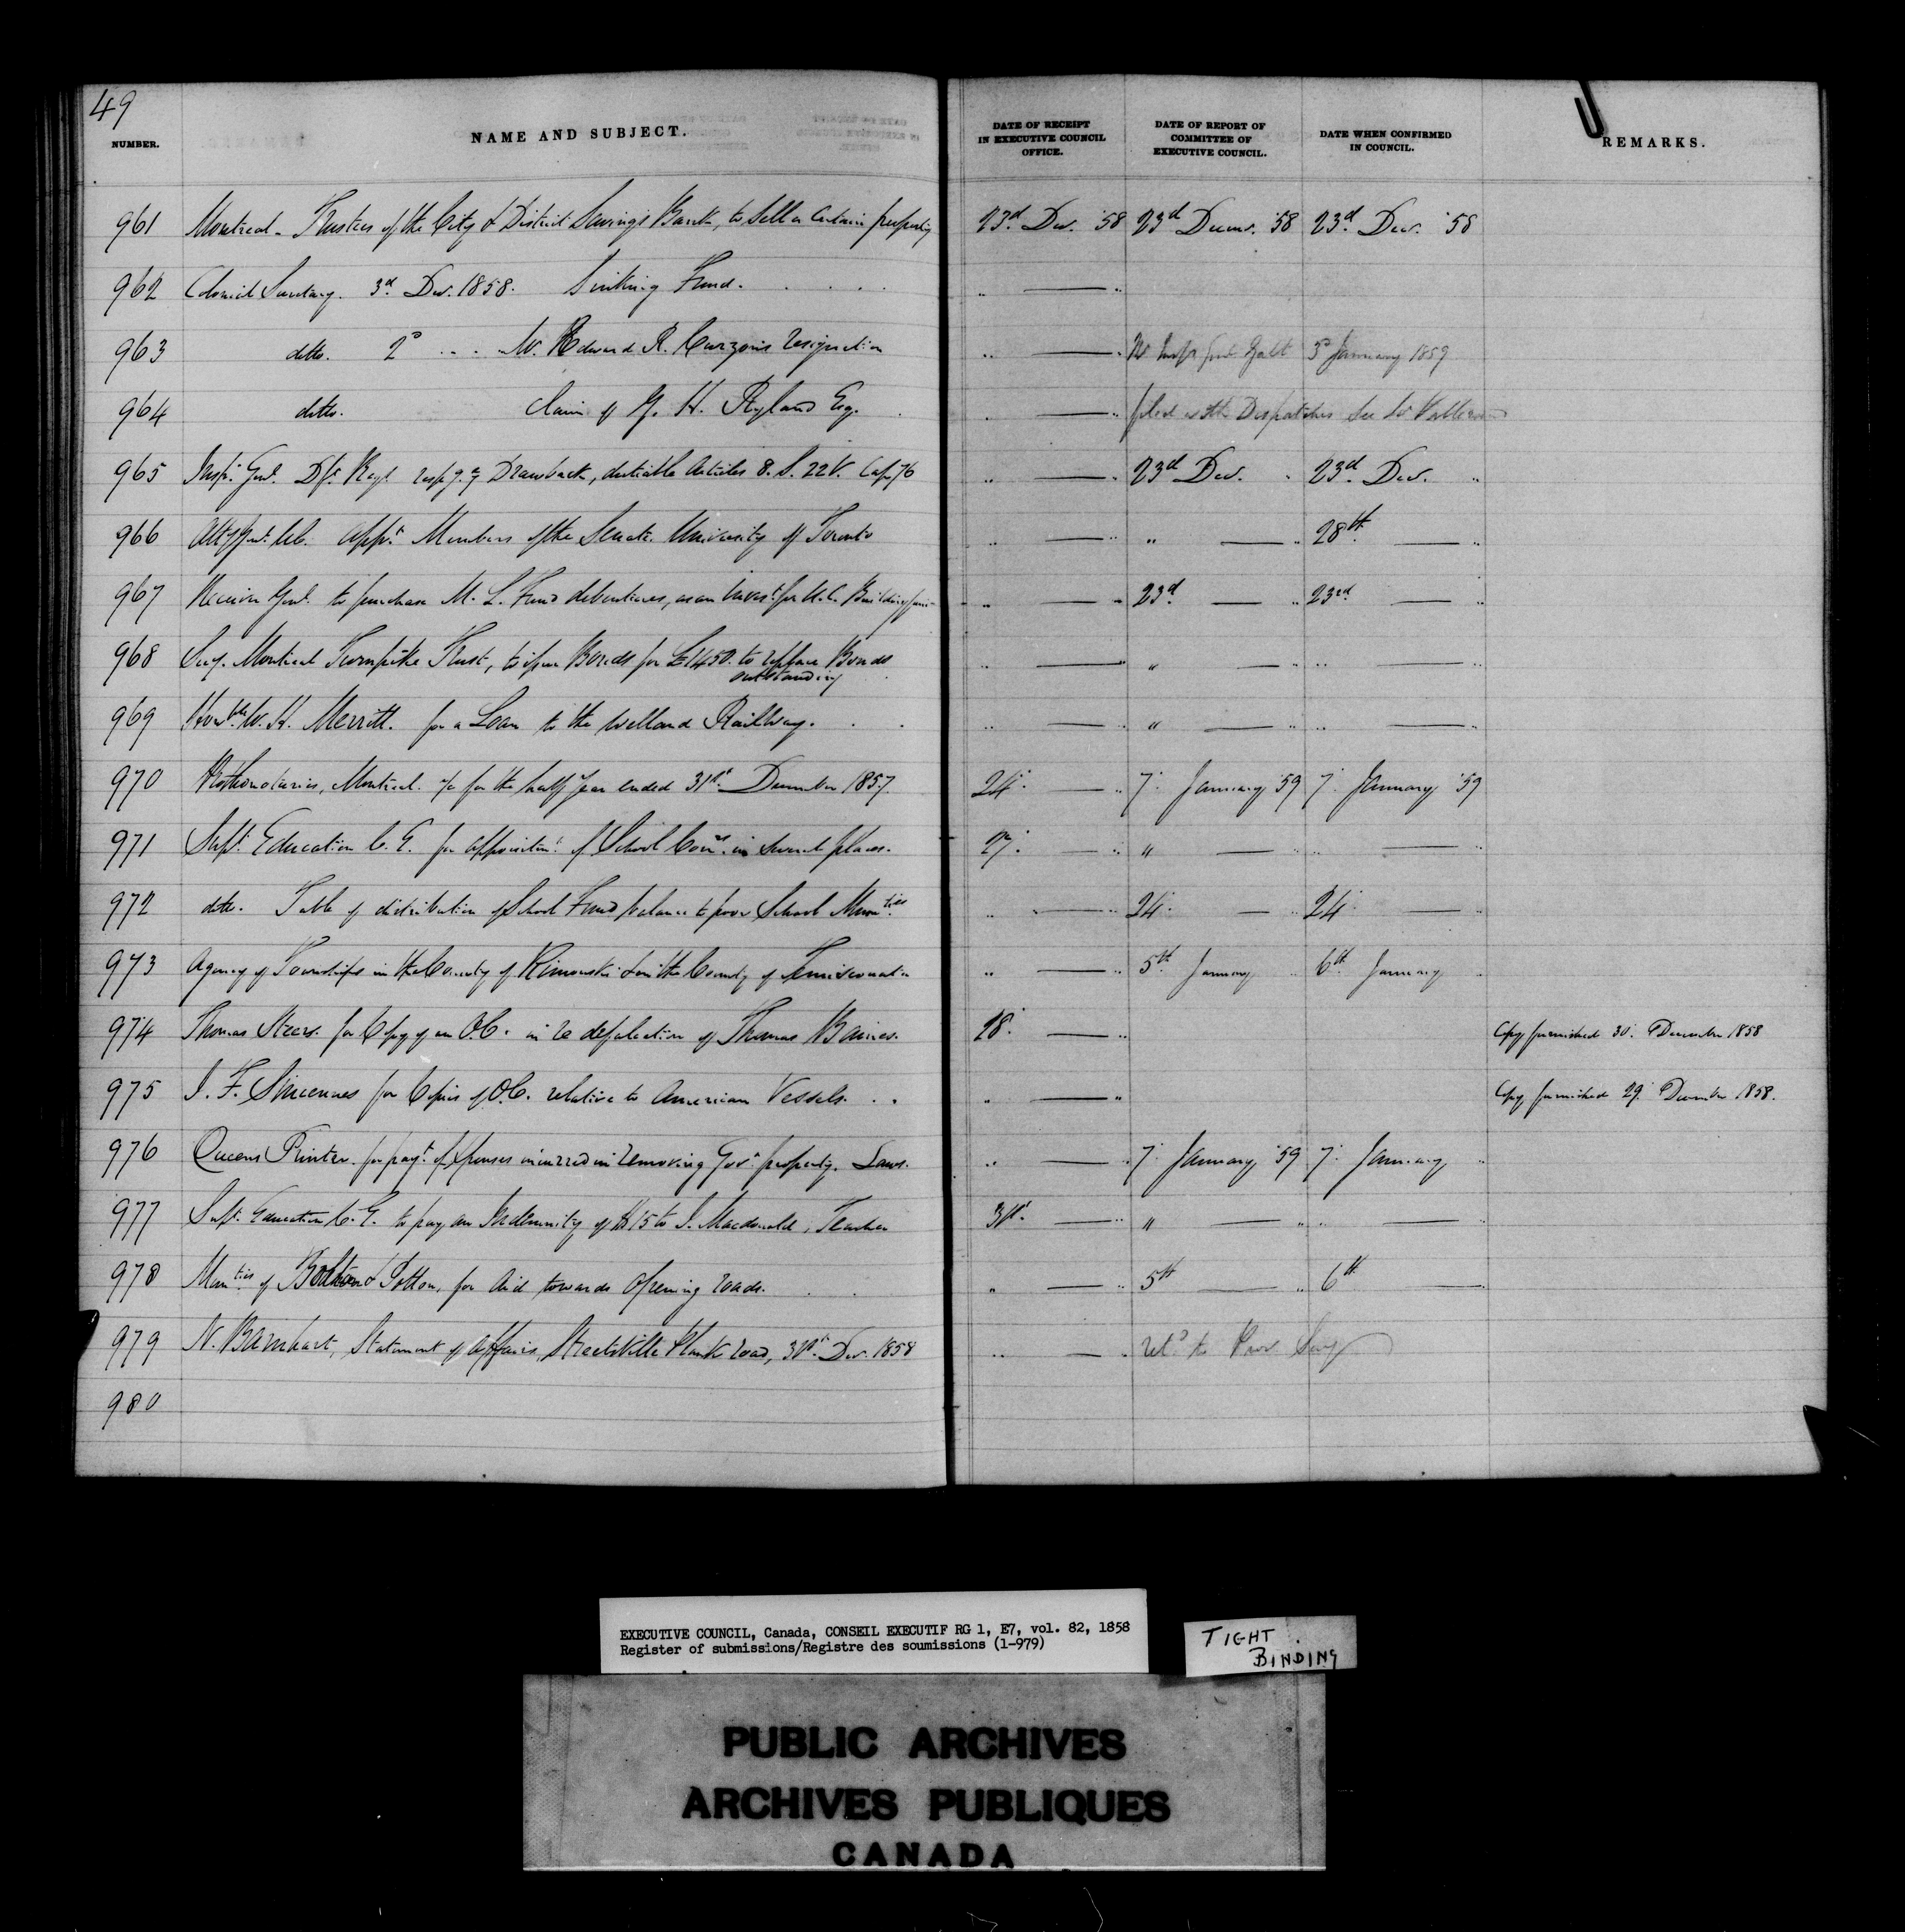 49
NUMBER.
NAME AND SUBJECT.
DATE OF RECEIPT IN EXECUTIVE COUNCIL OFFICE.
DATE OF REPORT OF COMMITTEE OF EXECUTIVE COUNCIL.
DATE WHEN CONFIRMED IN COUNCIL.
REMARKS.
961 Montreal - Trustees of the City & District Savings Bank, to Sell a Certain property 23d. Dec. '58 23d Decemr. '58 23d. Dec. '58
962 Colonial Secretary. 3d. Dec. 1858. Sinking Fund. . . . . " — "
963 ditto. 2d . . . Mr. Edward R. Curzon's resignation " — " Galt 3d January 1859
964 ditto. Claim of G. H. Ryland Esq. " — " filed with Despatches See
965 Inspr. Genl. Dft. Regl. respg. Drawback, dutiable Articles 8. S. 22 V. Cap 76 " — " 23d Dec. " 23d. Dec. "
966 Atty Genl. appt. Members of the Senate University of Toronto " — " " — " 28th. — "
967 Receiver Genl. to purchase M. L. Fund debentures, as an Invest. for U.C. Building fund " — " 23d. — " 23rd — "
968 Secy. Montreal Turnpike Trust, to issue Bonds for £1450. to replace Bonds " — " " — " " — "
outstanding
969 Honble. W. H. Merritt. for a Loan to the Welland Railway. . . " — " " — " " — "
970 Prothonotaries, Montreal. for the half year ended 31st. December 1857. 24. — " 7. January '59 7. January '59
971 Supt. Education C. E. for appointmt. of School Comrs. in several places. 27. — " " — " " — "
972 ditto. Table of distribution of School Fund balance to poor School Munities. " — " 24. — " 24. — "
973 Agency of Townships in the County of Rimouski & in the County of Temiscouata " — " 5th. January " 6th. January "
974 Thomas Steers. for Copy of an O.C. in re defalcation of Thomas Baines. 28. — " Copy furnished 30. December 1858
975 J. F. Sincennes for Copies of O.C. relative to American Vessels. . . " — " Copy furnished 29. December 1858.
976 Queens Printer. for payt. of expenses incurred in removing Govt. property. Laws. " — " 7. January '59 7. January "
977 Supt. Education C. E. to pay an Indemnity of to J. Macdonald, Teacher 31st. — " " — " " — "
978 Munties of Bolton & Potton, for Aid towards Opening roads. . . " — " 5th — " 6th — "
979 N. Barnhart, Statement of Affairs, Streetsville Plank road, 31st. Dec. 1858 " — " refd. to Prov Secy
980
EXECUTIVE COUNCIL, Canada, CONSEIL EXECUTIF RG 1, E7, vol. 82, 1858
Register of submissions/Registre des soumissions (1-979)
TIGHT
BINDING
PUBLIC ARCHIVES
ARCHIVES PUBLIQUES
CANADA